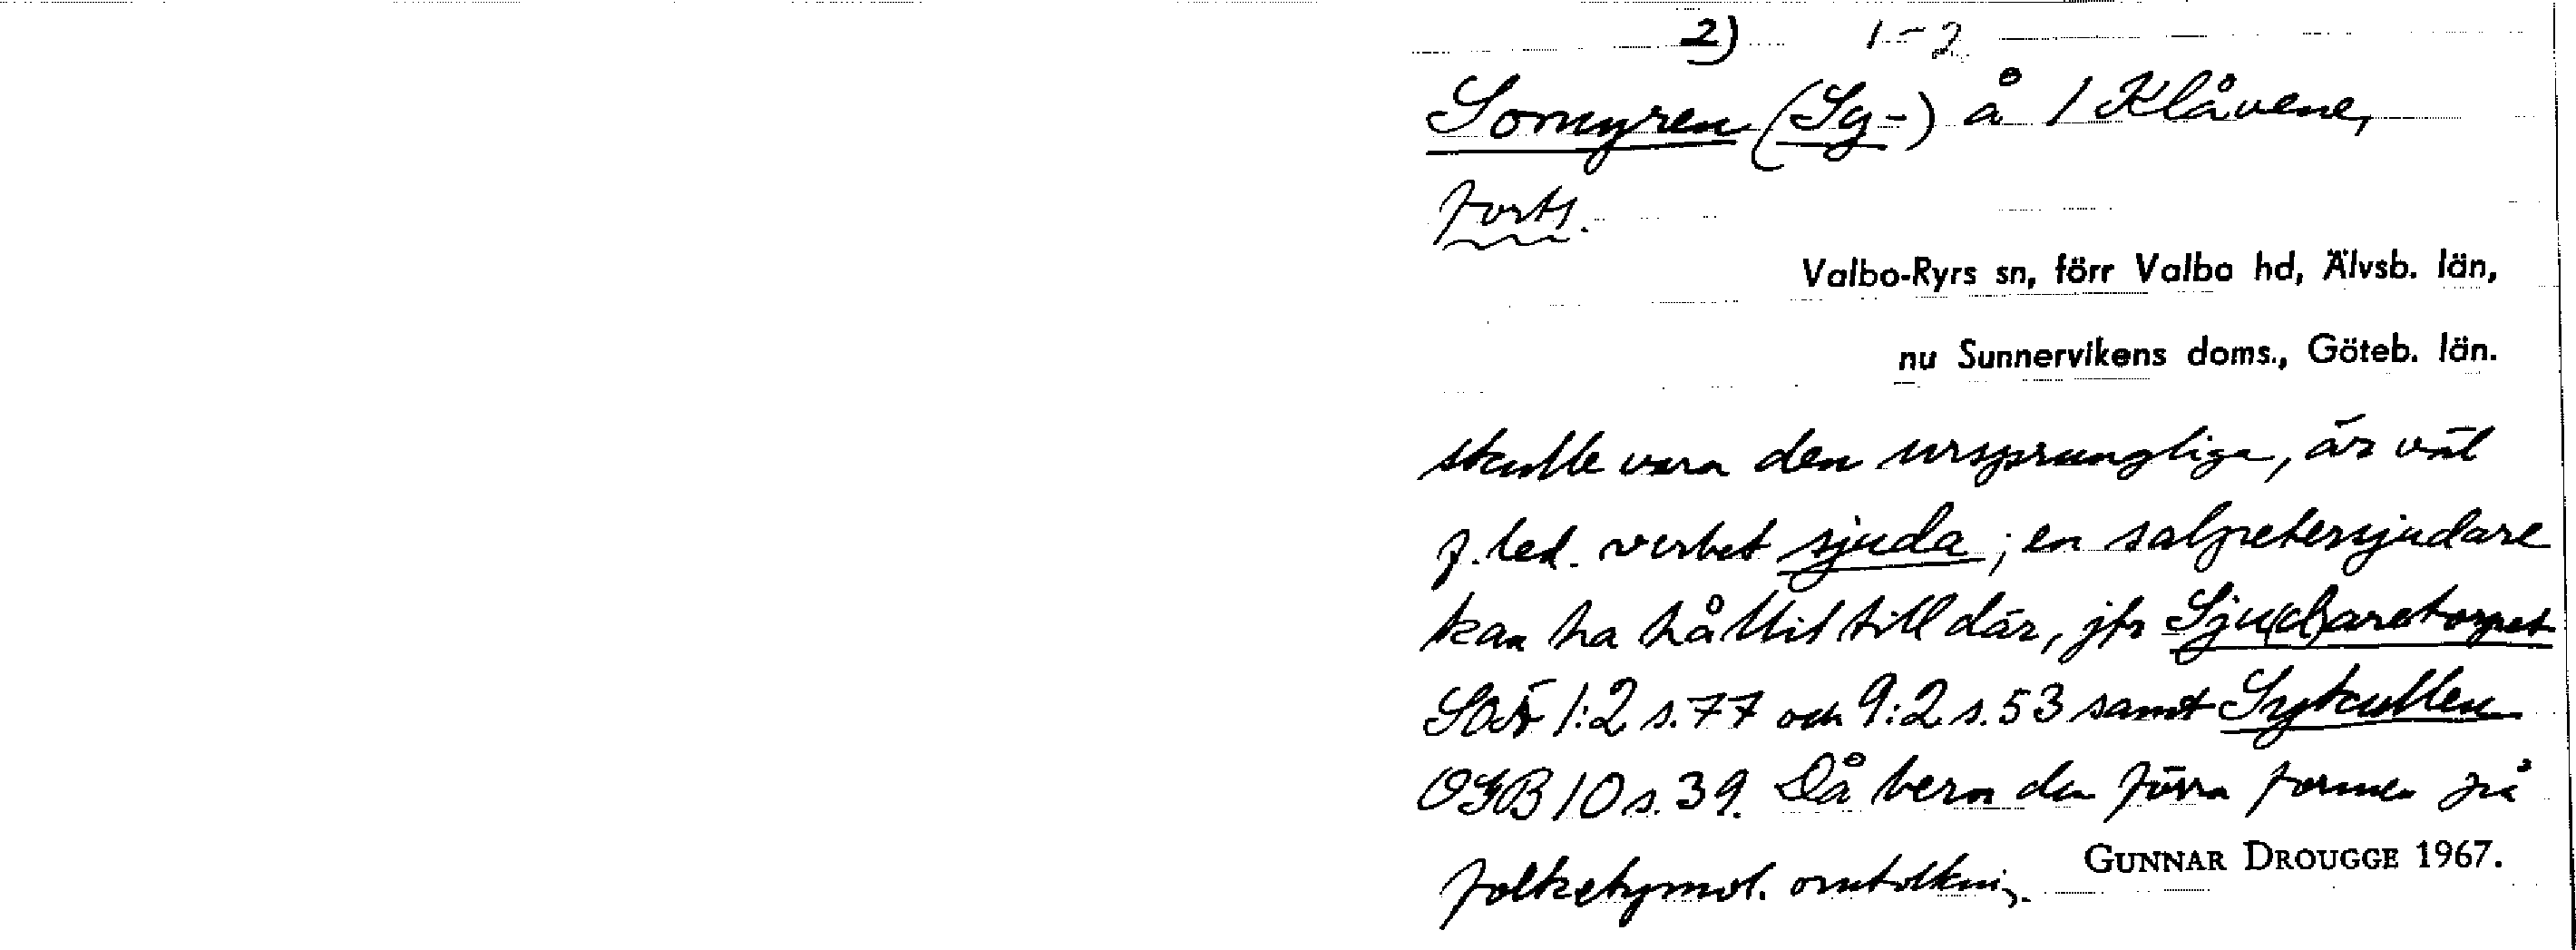 2) 1-2
Somyren (Sy-) å 1 Klåvene,
forts.
Valbo-Ryrs sn, förr Valbo hd, Älvsb. län,
nu Sunnervikens doms., Göteb. län.
skulle vara den ursprungliga, är väl
f. led. verbet sjuda; en salpetersjudare
kan ha hållit till där, jfr Sju(d)aretorpet
SOÄ 1:2 s. 77 och 9:2 s. 53 samt Sykullen
OGB 10 s. 39. Då beror den förra formen på
folketymol. omtolkning.
GUNNAR DROUGGE 1967.